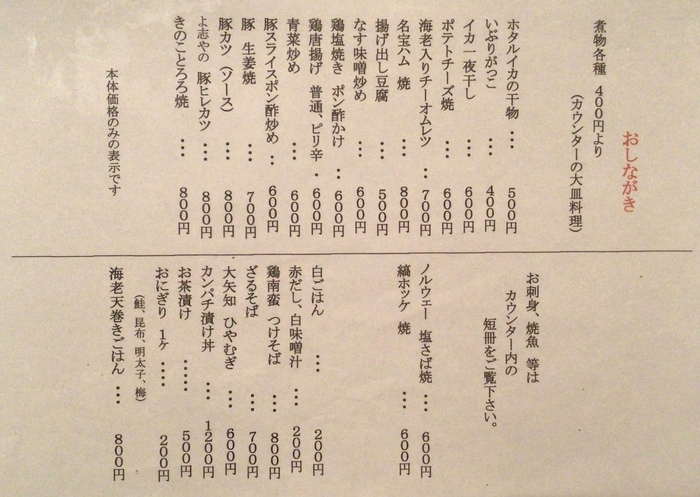 おしながき
煮物各種 400円より
（カウンターの大皿料理）
ホタルイカの干物 ・・・ 500円
いぶりがっこ ・・・ 400円
イカ一夜干し ・・・ 600円
ポテトチーズ焼 ・・・ 600円
海老入りチーオムレツ ・・ 700円
名宝ハム 焼 ・・・ 800円
揚げ出し豆腐 ・・・ 500円
なす味噌炒め ・・・ 600円
鶏塩焼き ポン酢かけ ・ 600円
鶏唐揚げ 普通、ピリ辛 ・ 600円
青菜炒め ・・・ 600円
豚スライスポン酢炒め ・・ 600円
豚 生姜焼 ・・・ 700円
豚カツ（ソース） ・・・ 800円
よ志やの 豚ヒレカツ ・・・ 800円
きのことろろ焼 ・・・ 800円
本体価格のみの表示です
お刺身、焼魚 等は
カウンター内の
短冊をご覧下さい。
ノルウェー 塩さば焼 ・・・ 600円
縞ホッケ 焼 ・・・ 600円
白ごはん ・・・ 200円
赤だし、白味噌汁 ・・・ 200円
鶏南蛮 つけそば ・・・ 800円
ざるそば ・・・ 700円
大矢知 ひやむぎ ・・・ 600円
カンパチ漬け丼 ・・・ 1200円
お茶漬け ・・・・・ 500円
おにぎり 1ヶ ・・・・ 200円
（鮭、昆布、明太子、梅）
海老天巻きごはん ・・・ 800円